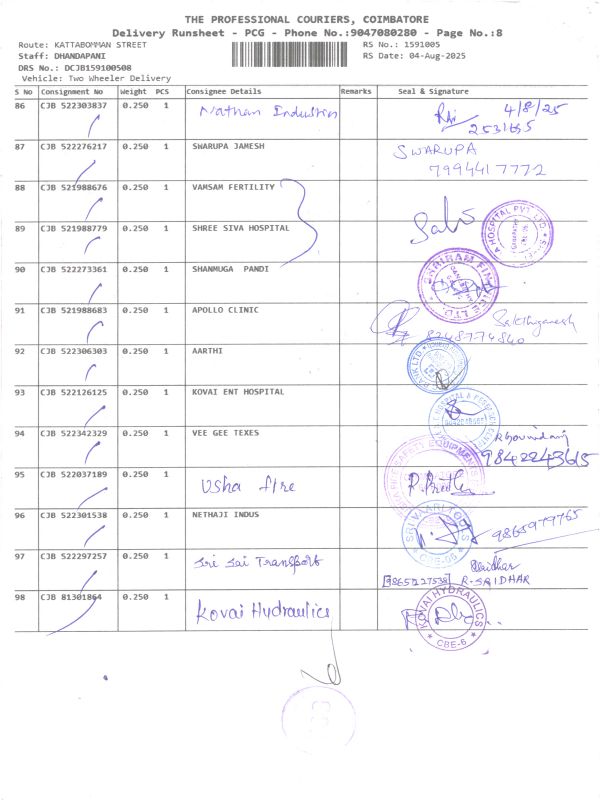 THE PROFESSIONAL COURIERS, COIMBATORE
Delivery Runsheet - PCG - Phone No.:9047080280 - Page No.:8
Route: KATTABOMMAN STREET RS No.: 1591005
Staff: DHANDAPANI RS Date: 04-Aug-2025
DRS No.: DCJB159100508
Vehicle: Two Wheeler Delivery
S No Consignment No Weight PCS Consignee Details Remarks Seal & Signature
86 CJB 522303837 0.250 1 Nathan Industries 4/8/25
2531655
87 CJB 522276217 0.250 1 SWARUPA JAMESH SWARUPA
7994417772
88 CJB 521988676 0.250 1 VAMSAM FERTILITY
89 CJB 521988779 0.250 1 SHREE SIVA HOSPITAL
HOSPITAL PVT LTD
90 CJB 522273361 0.250 1 SHANMUGA PANDI SHRIRAM FINANCE LTD.
91 CJB 521988683 0.250 1 APOLLO CLINIC Sakthiganesh
8248774840
92 CJB 522306303 0.250 1 AARTHI BANK LTD
93 CJB 522126125 0.250 1 KOVAI ENT HOSPITAL
94 CJB 522342329 0.250 1 VEE GEE TEXES
9842243615
95 CJB 522037189 0.250 1 Usha fire SAFETY EQUIPMENTS
96 CJB 522301538 0.250 1 NETHAJI INDUS SRI VAARI TOOLS CBE-06 9865979765
97 CJB 522297257 0.250 1 Sri Sai Transport
9865227538 R-SRIDHAR
98 CJB 81301864 0.250 1 Kovai Hydraulics KOVAI HYDRAULICS CBE-6